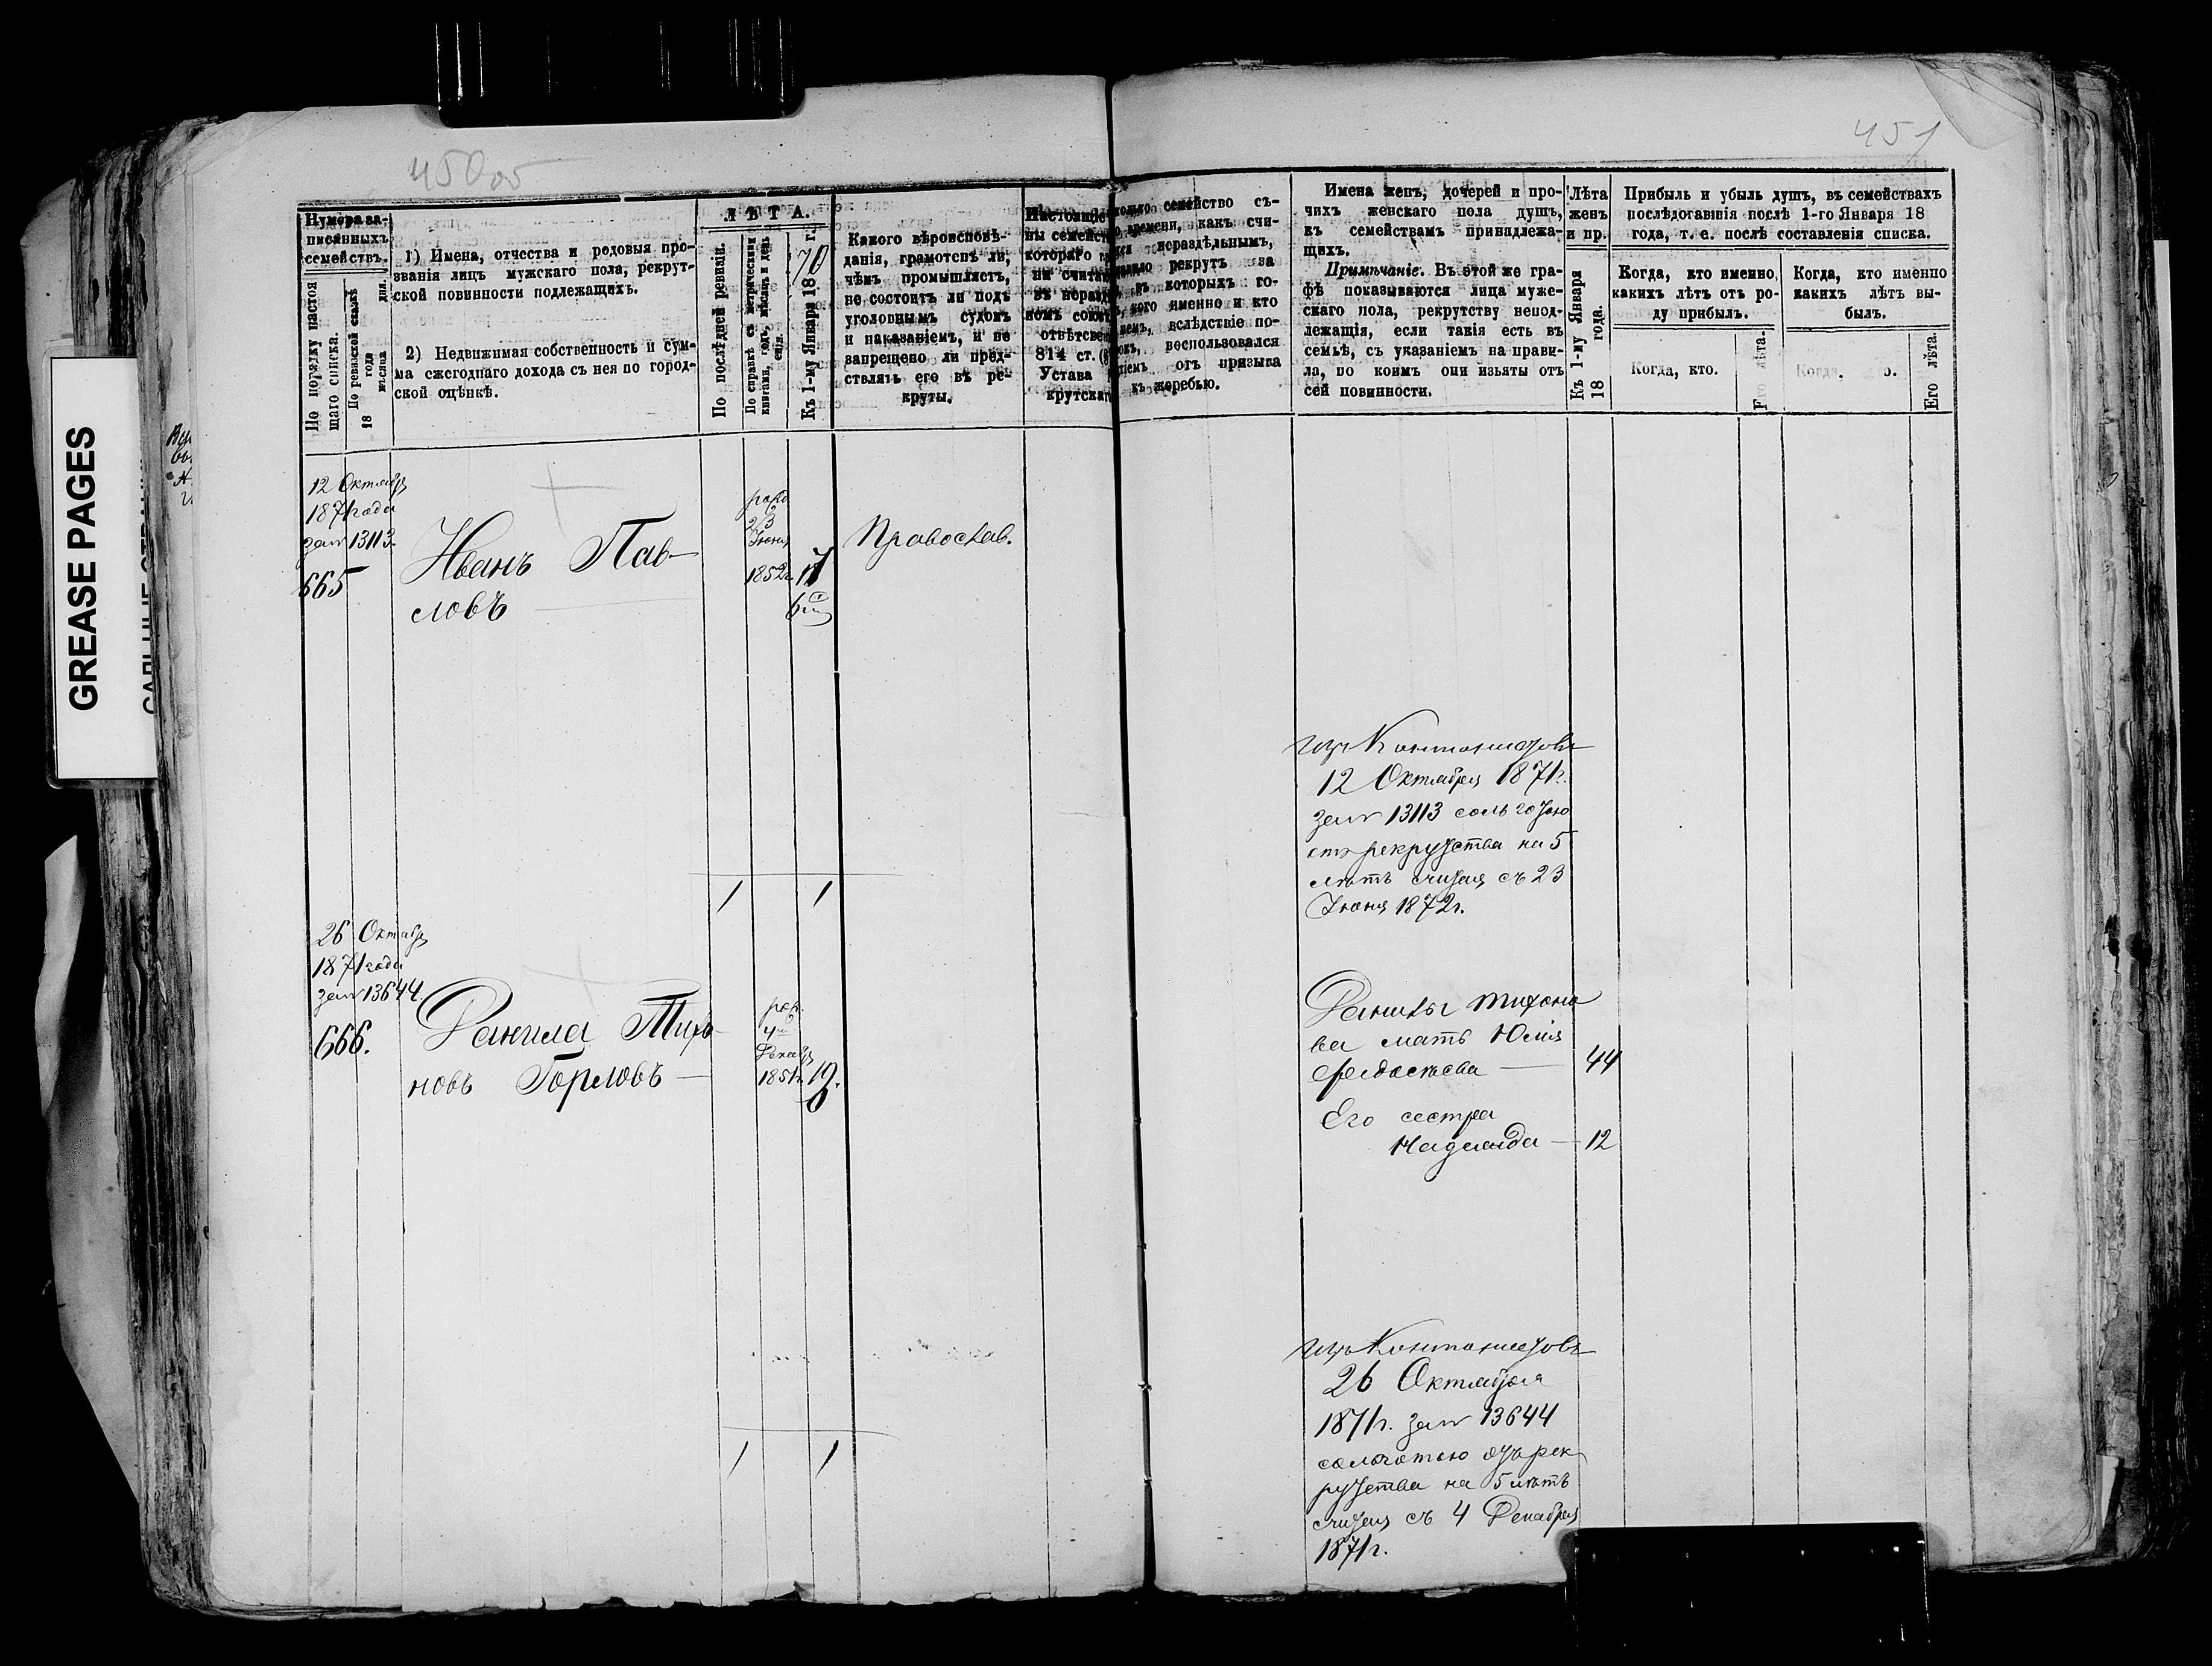 450об
451
GREASE PAGES
Нумера за-
писанныхъ
семействъ.
По порядку настоя
щаго списка.
По ревизской сказкѣ
18 года
мѣсяца дня.
1) Имена, отчества и родовыя про-
званія лицъ мужскаго пола, рекрут-
ской повинности подлежащихъ.
2) Недвижимая собственность и сум-
ма ежегоднаго дохода съ нея по город-
ской оцѣнкѣ.
ЛѢТА.
По послѣдней ревизіи.
По справкѣ съ метрическими
книгами, годъ, мѣсяцъ и день
Къ 1-му Января 1870 г.
Какого вѣроисповѣ-
данія, грамотенъ ли,
чѣмъ промышляетъ,
не состоитъ ли подъ
уголовнымъ судомъ
и наказаніемъ, и не
запрещено ли пред-
ставлять его въ ре-
круты.
Настоящіе
ны семейст
котораго
ни счита
въ нераз
номъ сос
отвѣтстве
814 ст.
Устава
крутска
семейство съ-
времени, какъ счи-
нераздѣльнымъ,
рекрутъ за
которыхъ го-
кого именно и кто
вслѣдствіе по-
воспользовался
отъ призыва
къ жеребью.
Имена женъ, дочерей и про-
чихъ женскаго пола душъ,
къ семействамъ принадлежа-
щихъ.
Примѣчаніе. Въ этой же гра-
фѣ показываются лица муже-
скаго пола, рекрутству непод-
лежащія, если такія есть въ
семьѣ, съ указаніемъ на прави-
ла, по коимъ они изъяты отъ
сей повинности.
Лѣта
женъ
и пр.
Къ 1-му Января
18 года.
Прибыль и убыль душъ, въ семействахъ
послѣдовавшія послѣ 1-го Января 18
года, т. е. послѣ составленія списка.
Когда, кто именно,
какихъ лѣтъ отъ ро-
ду прибылъ.
Когда, кто именно
какихъ лѣтъ вы-
былъ.
Когда, кто.
Его лѣта.
Когда,
Его лѣта.
12 Октябр
1871 года
за № 13113.
665
Иванъ Пав-
ловъ
рожд
23
Іюня
1852г.
17
6 м
Православ.
изъ Кантонистовъ
12 Октября 1871г.
за № 13113 съ льготою
отъ рекрутства на 5
лѣтъ считая съ 23
Іюня 1872г.
1 1
26 Октябр
1871 года
за № 13644.
666.
Данила Тихо-
новъ Горловъ
рож.
4го
Декабр
1851г.
19.
Данилы Тихоно
ва мать Юлія
Федосѣева 44
Его сестра
Надежда 12
изъ Кантонистовъ
26 Октября
1871г. за № 13644
со льготою отъ рек
рутства на 5 лѣтъ
считая съ 4 Декабря
1871г.
1 1